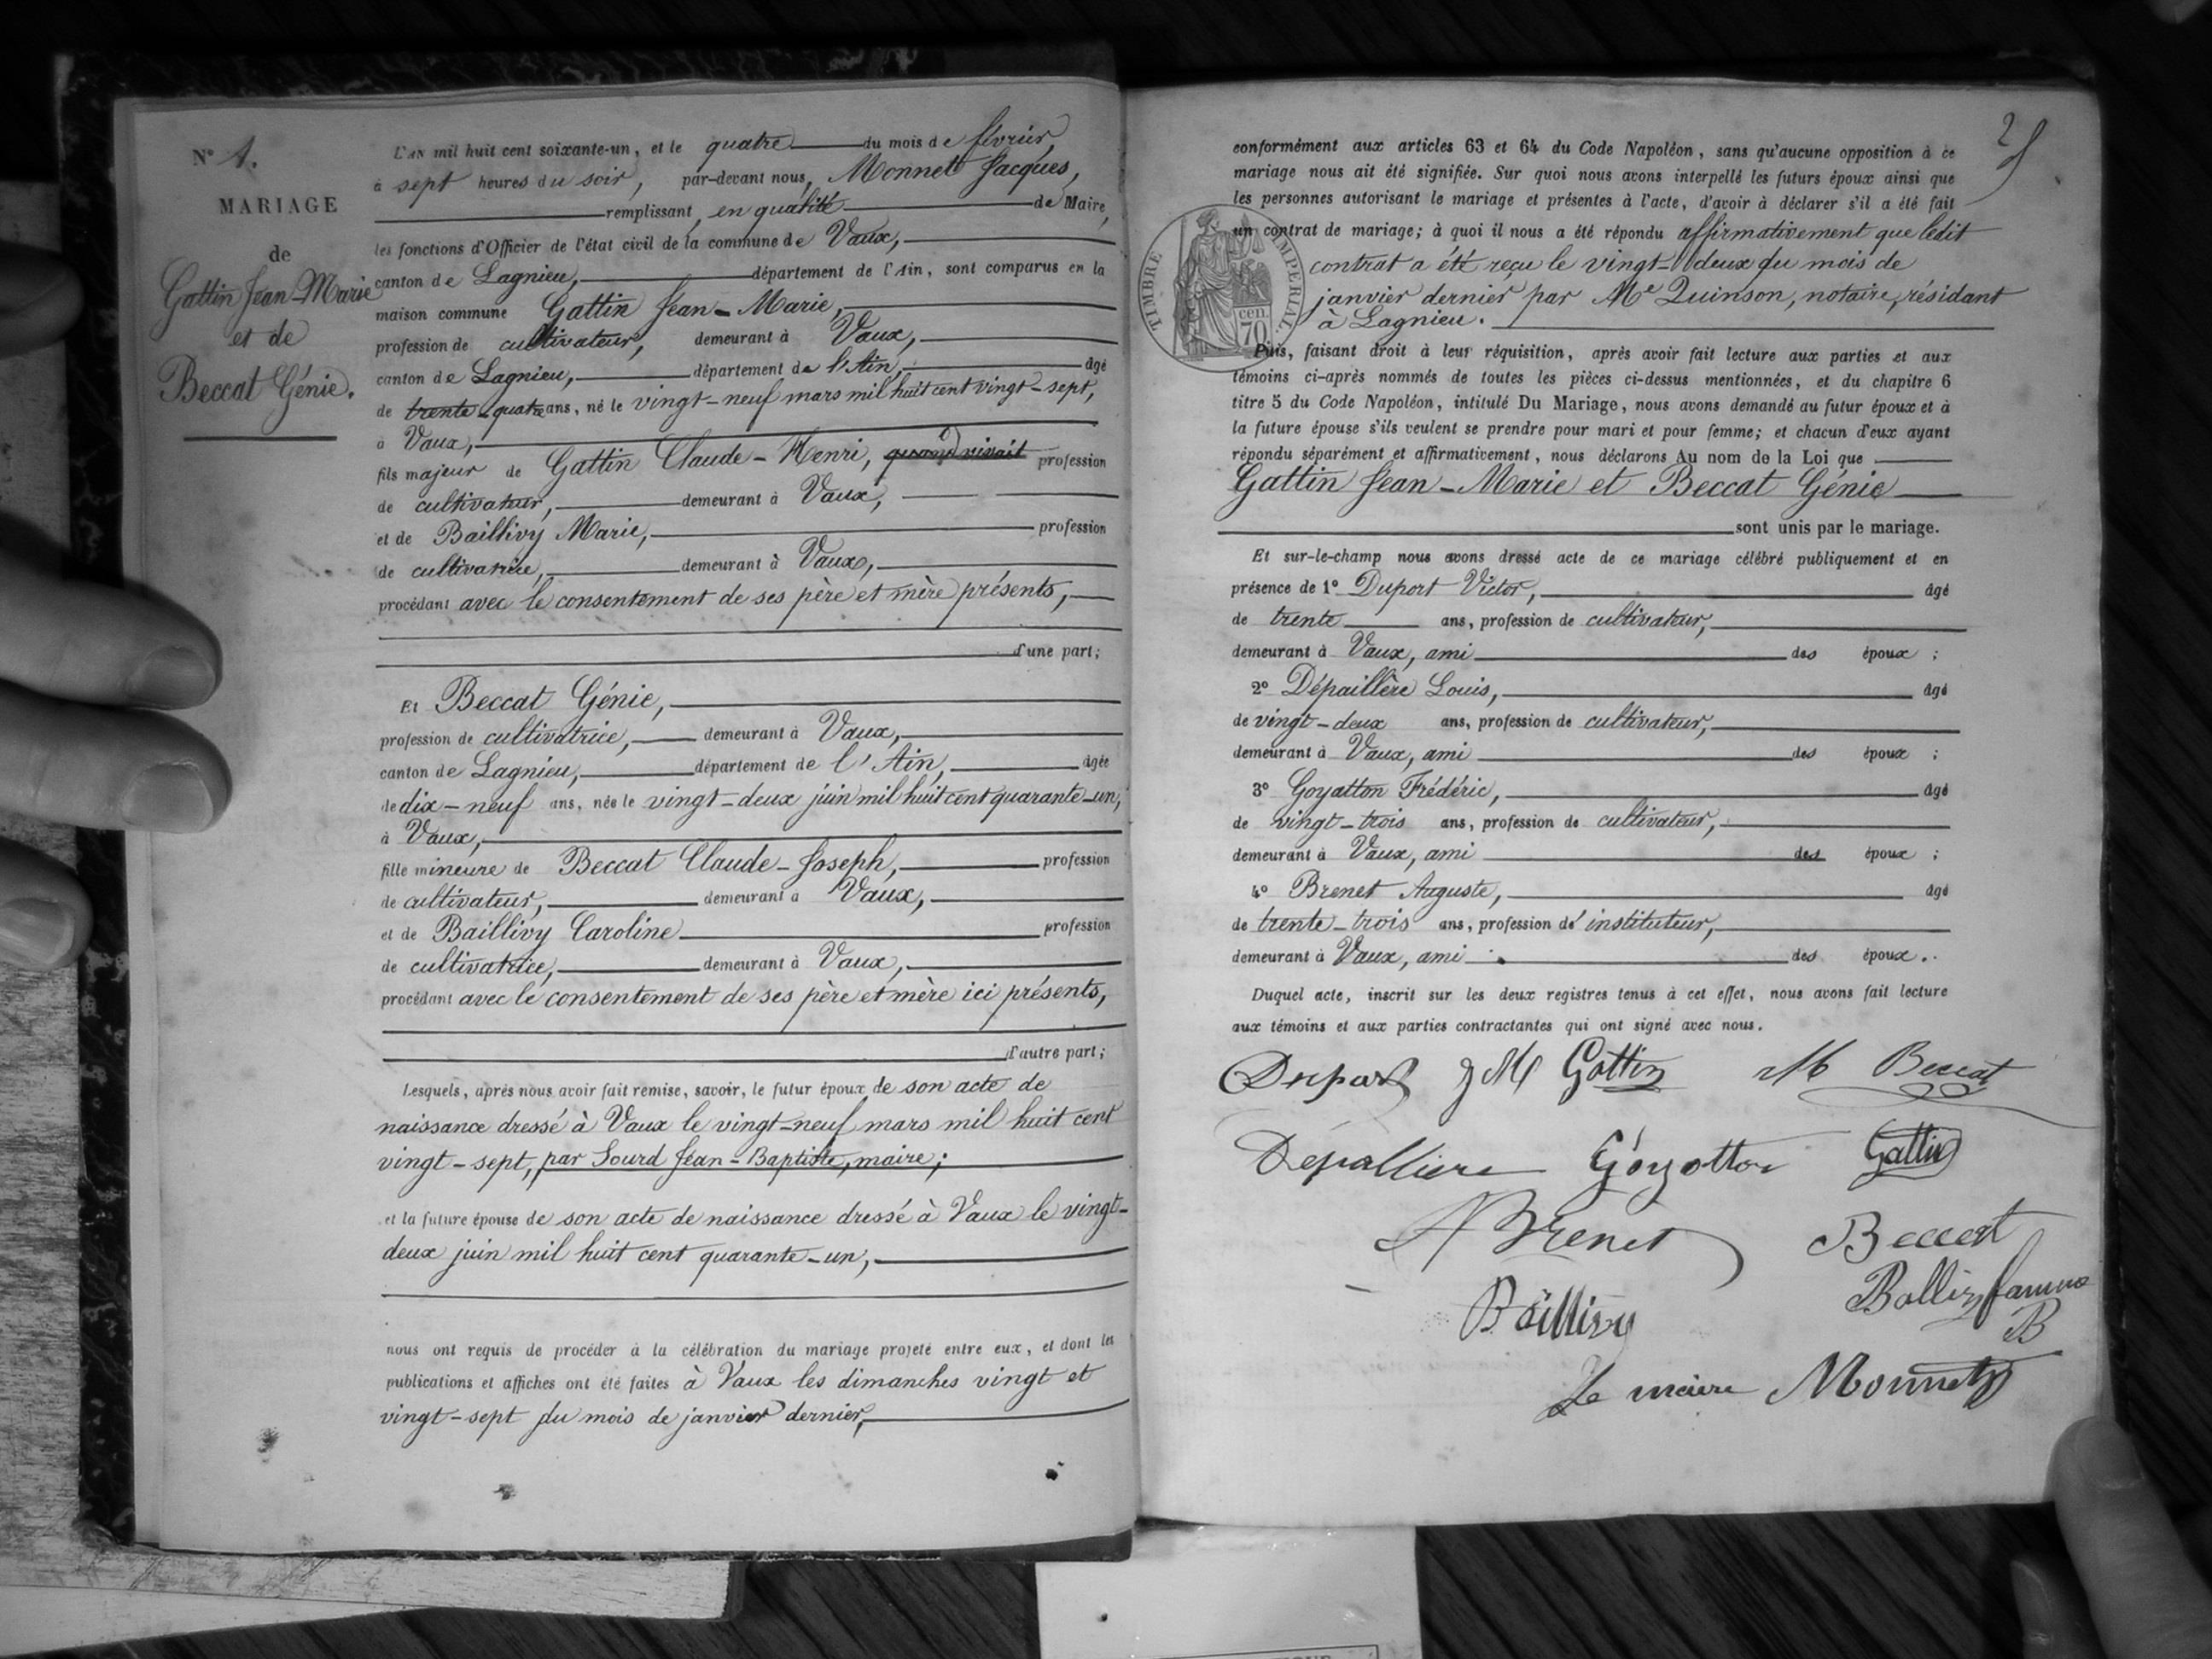 N° 1.
MARIAGE
de
Gattin Jean-Marie
et de
Beccat Génie.
L'AN mil huit cent soixante-un, et le quatre du mois de février,
à sept heures du soir, par-devant nous, Monnet Jacques,
remplissant, en qualité de Maire,
les fonctions d'Officier de l'état civil de la commune de Vaux,
canton de Lagnieu, département de l'Ain, sont comparus en la
maison commune Gattin Jean-Marie,
profession de cultivateur, demeurant à Vaux,
canton de Lagnieu, département de l'Ain, âgé
de trente-quatre ans, né le vingt-neuf mars mil huit cent vingt-sept,
à Vaux,
fils majeur de Gattin Claude-Henri, quand vivait profession
de cultivateur, demeurant à Vaux,
et de Baillivy Marie, profession
de cultivatrice, demeurant à Vaux,
procédant avec le consentement de ses père et mère présents,
d'une part;
Et Beccat Génie,
profession de cultivatrice, demeurant à Vaux,
canton de Lagnieu, département de l'Ain, âgée
de dix-neuf ans, née le vingt-deux juin mil huit cent quarante-un,
à Vaux,
fille mineure de Beccat Claude-Joseph, profession
de cultivateur, demeurant à Vaux,
et de Baillivy Caroline profession
de cultivatrice, demeurant à Vaux,
procédant avec le consentement de ses père et mère ici présents,
d'autre part;
Lesquels, après nous avoir fait remise, savoir, le futur époux de son acte de
naissance dressé à Vaux le vingt-neuf mars mil huit cent
vingt-sept, par Sourd Jean-Baptiste, maire;
et la future épouse de son acte de naissance dressé à Vaux le vingt-
deux juin mil huit cent quarante-un,
nous ont requis de procéder à la célébration du mariage projeté entre eux, et dont les
publications et affiches ont été faites à Vaux les dimanches vingt et
vingt-sept du mois de janvier dernier,
conformément aux articles 63 et 64 du Code Napoléon, sans qu'aucune opposition à ce
mariage nous ait été signifiée. Sur quoi nous avons interpellé les futurs époux ainsi que
les personnes autorisant le mariage et présentes à l'acte, d'avoir à déclarer s'il a été fait
un contrat de mariage; à quoi il nous a été répondu affirmativement que ledit
contrat a été reçu le vingt-deux du mois de
janvier dernier par Me Quinson, notaire, résidant
à Lagnieu.
TIMBRE IMPERIAL.
cen.
70
Puis, faisant droit à leur réquisition, après avoir fait lecture aux parties et aux
témoins ci-après nommés de toutes les pièces ci-dessus mentionnées, et du chapitre 6
titre 5 du Code Napoléon, intitulé Du Mariage, nous avons demandé au futur époux et à
la future épouse s'ils veulent se prendre pour mari et pour femme; et chacun d'eux ayant
répondu séparément et affirmativement, nous déclarons Au nom de la Loi que
Gattin Jean-Marie et Beccat Génie
sont unis par le mariage.
Et sur-le-champ nous avons dressé acte de ce mariage célébré publiquement et en
présence de 1° Duport Victor, âgé
de trente ans, profession de cultivateur,
demeurant à Vaux, ami des époux;
2° Dépaillère Louis, âgé
de vingt-deux ans, profession de cultivateur,
demeurant à Vaux, ami des époux;
3° Goyatton Frédéric, âgé
de vingt-trois ans, profession de cultivateur,
demeurant à Vaux, ami des époux;
4° Brenet Auguste, âgé
de trente-trois ans, profession d'instituteur,
demeurant à Vaux, ami des époux.
Duquel acte, inscrit sur les deux registres tenus à cet effet, nous avons fait lecture
aux témoins et aux parties contractantes qui ont signé avec nous.
Duport J M Gattin Beccat
Depalliere Goyatton Gattin
A Brenet Beccat
Baillivy
Le maire Monnet